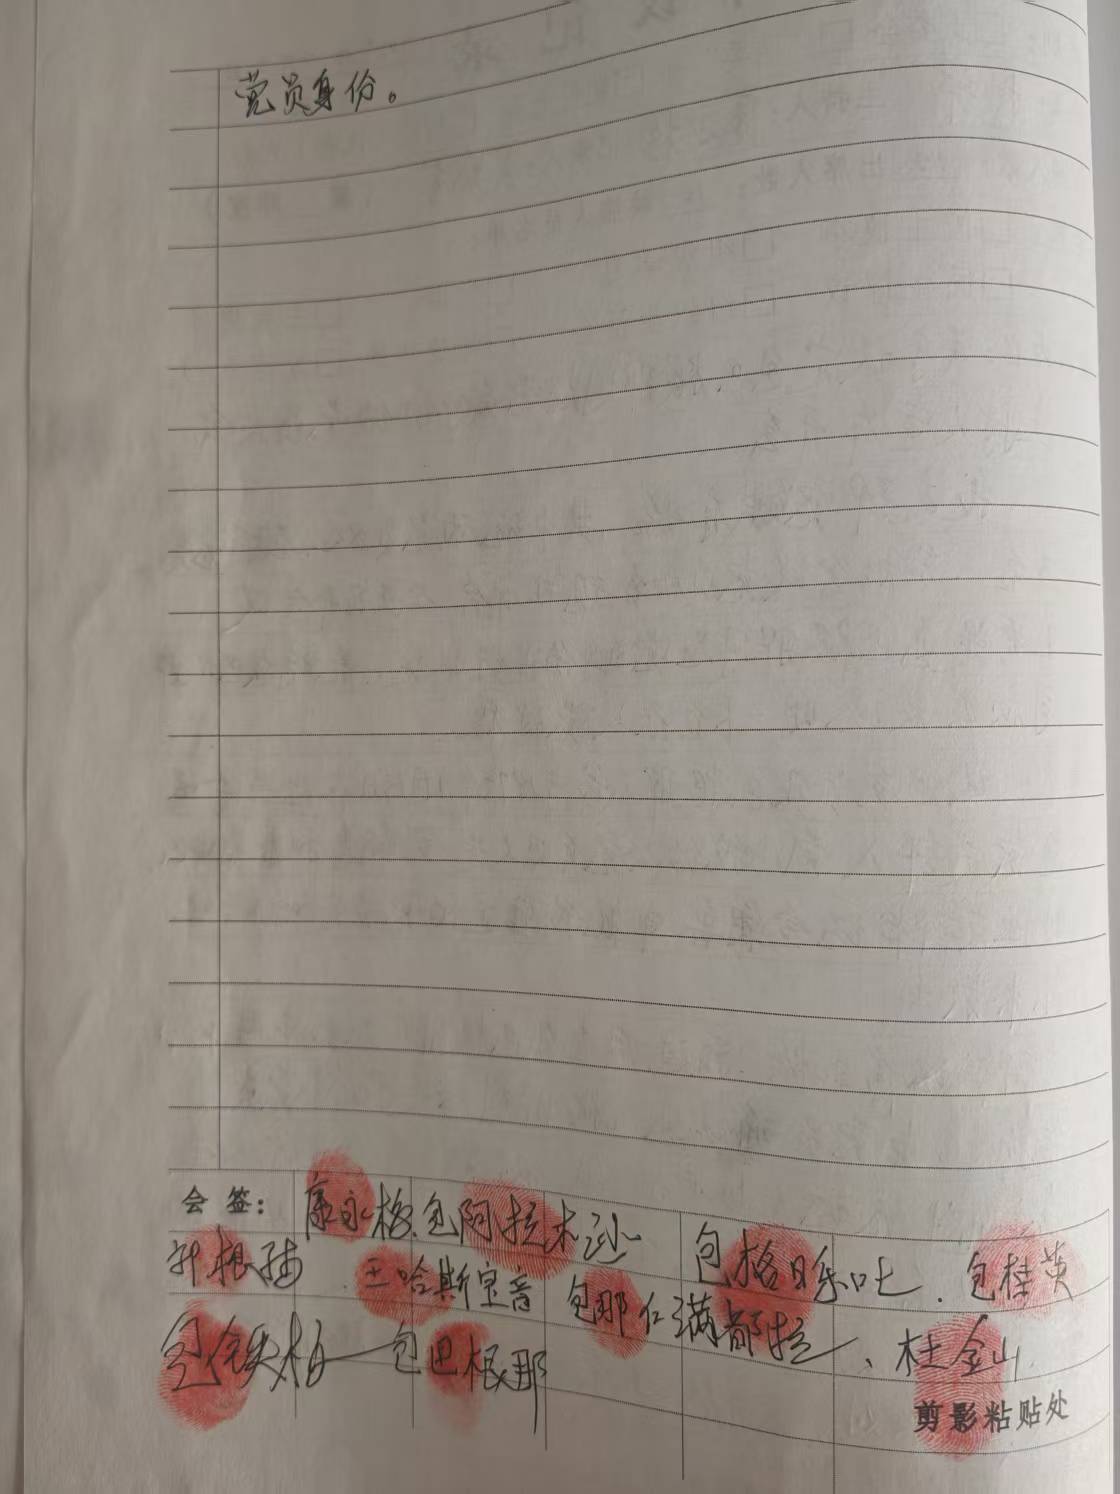 党员身份。
会 签： 康永梅、包阿拉木沙 包格日乐吐、包桂英
王哈斯宝音 包那仁满都拉、杜金山
包铁柏 包巴根那
剪影粘贴处